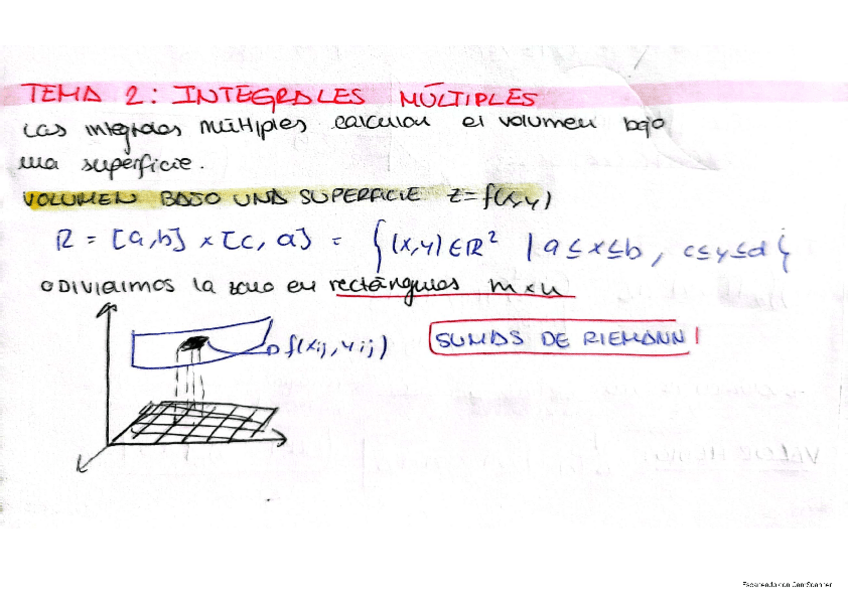 TEMA 2: INTEGRALES MÚLTIPLES
Las integrales múltiples calculan el volumen bajo
una superficie.
VOLUMEN BAJO UNA SUPERFICIE z=f(x,y)
R = [a,b] x [c,d] = {(x,y) ∈ R² | a ≤ x ≤ b, c ≤ y ≤ d}
Dividimos la zona en rectángulos m x n
f(xij, yij)
SUMAS DE RIEMANN
Escaneado con CamScanner